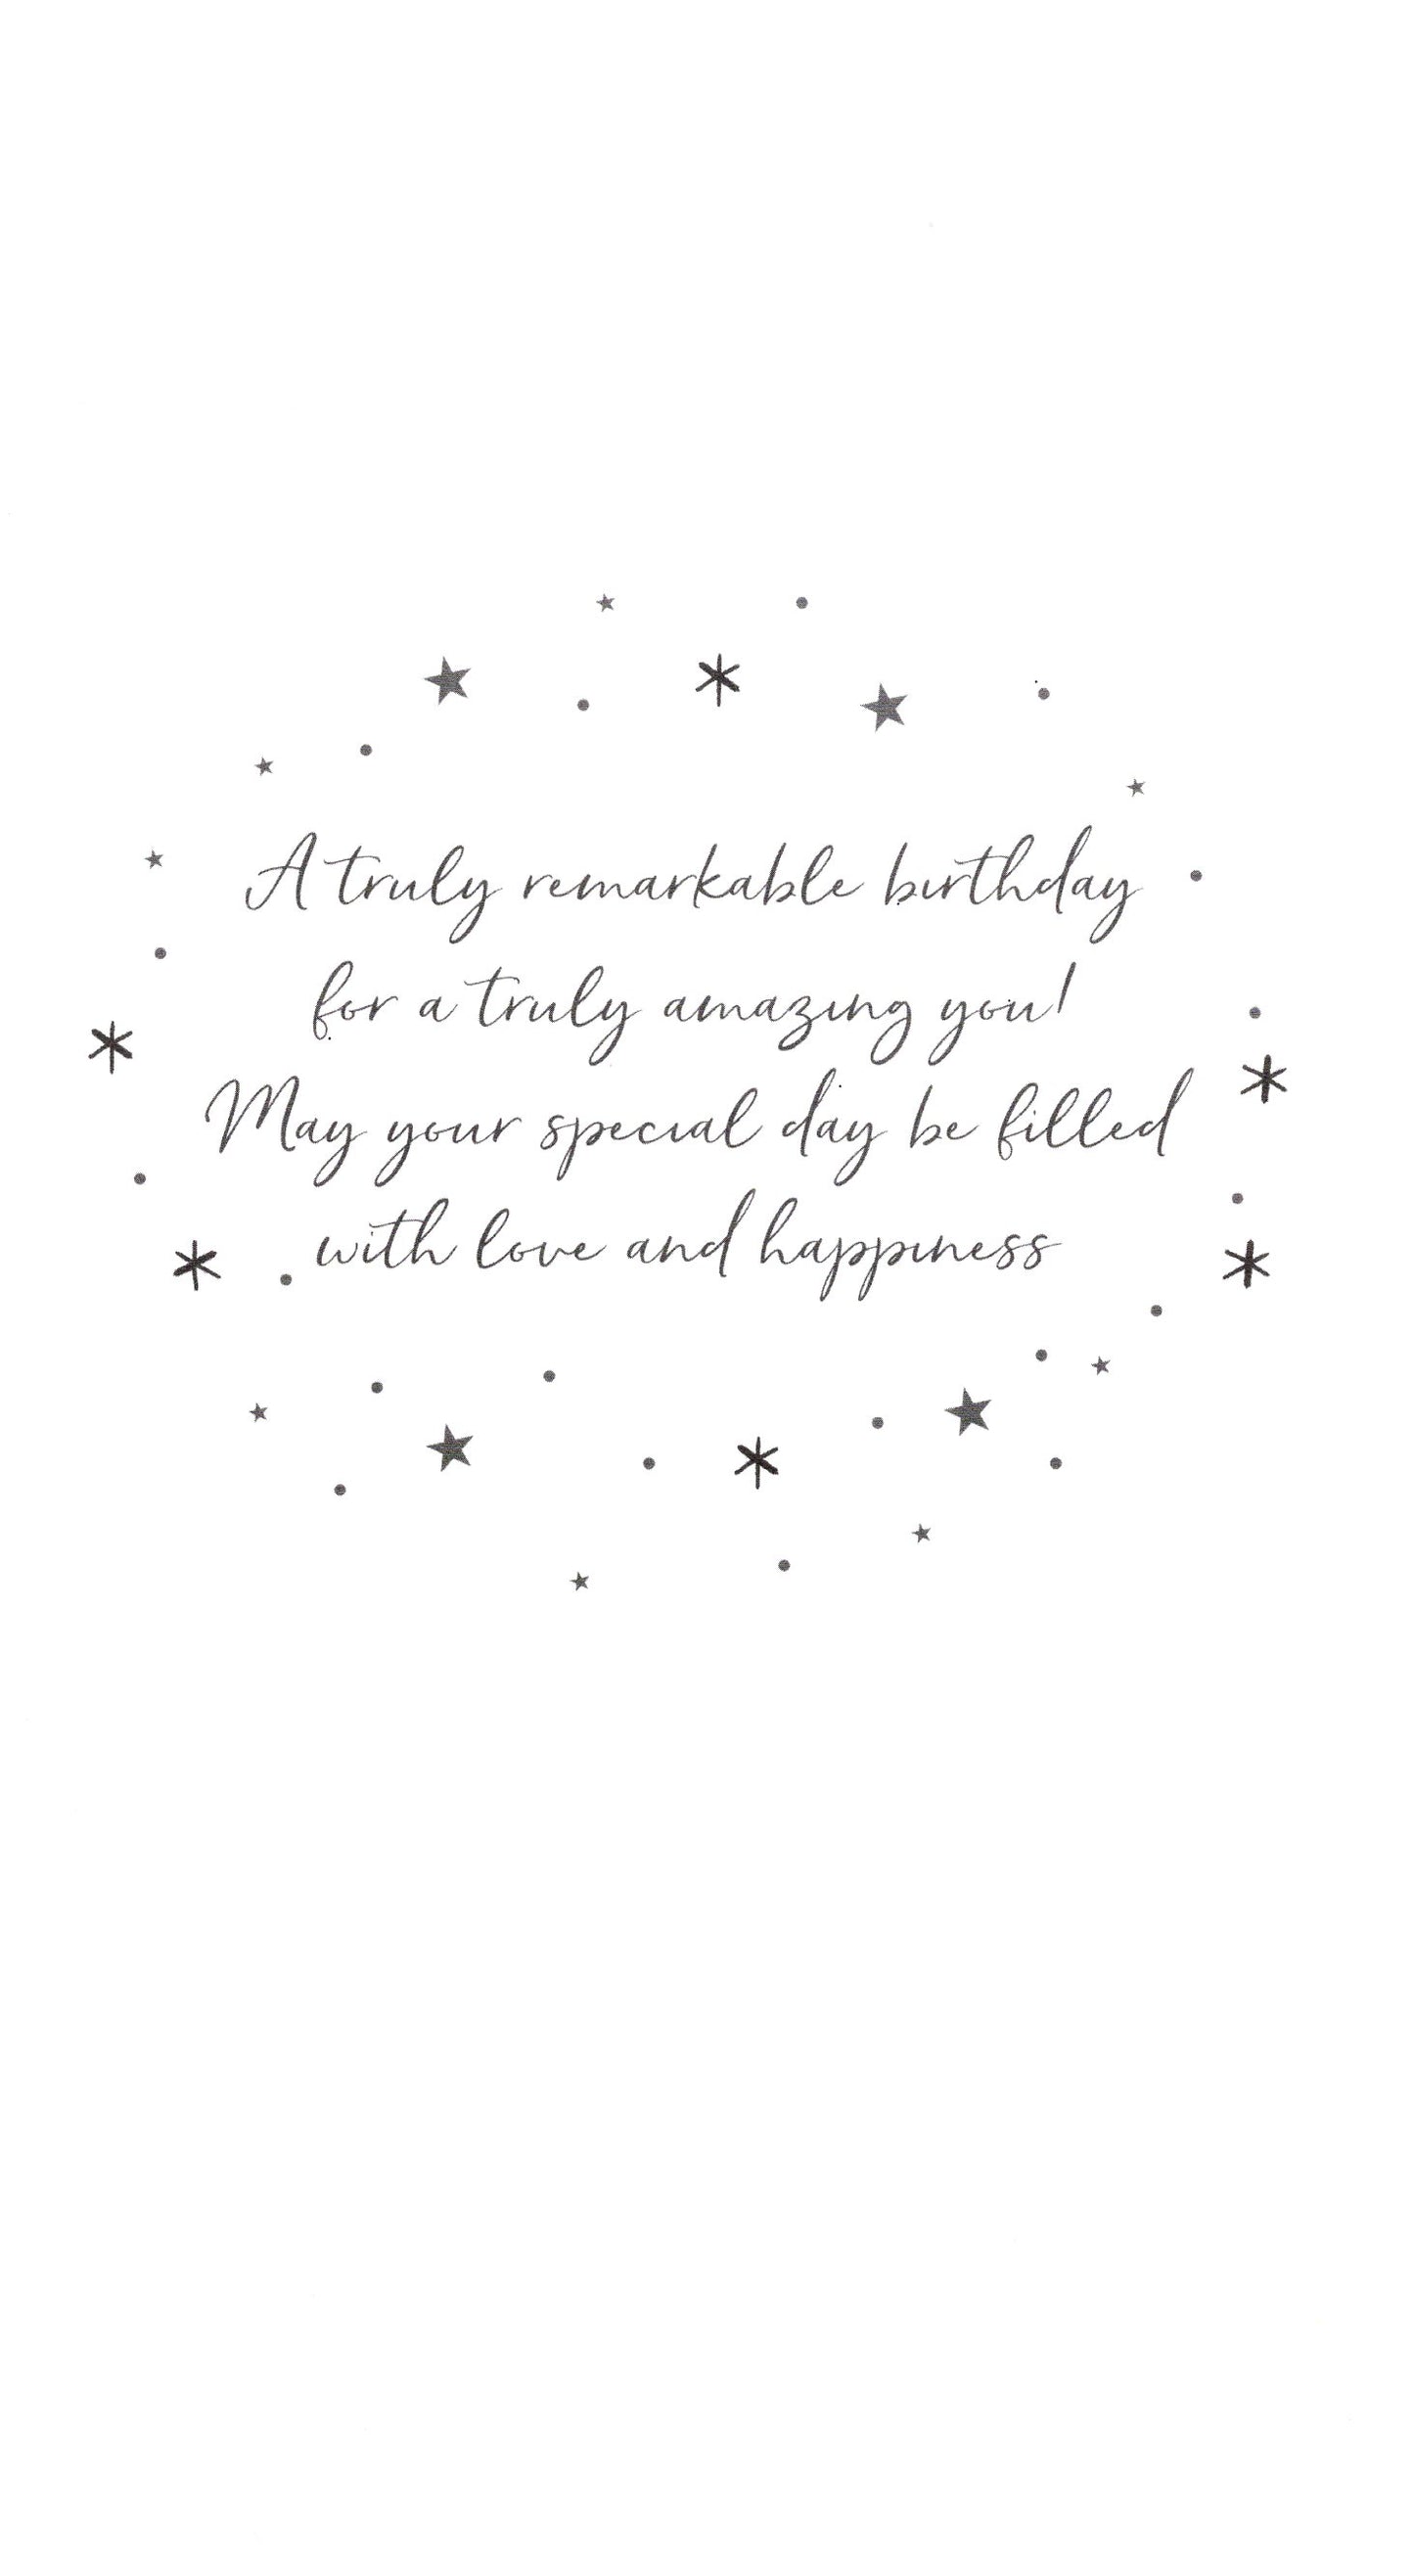 A truly remarkable birthday
for a truly amazing you!
May your special day be filled
with love and happiness